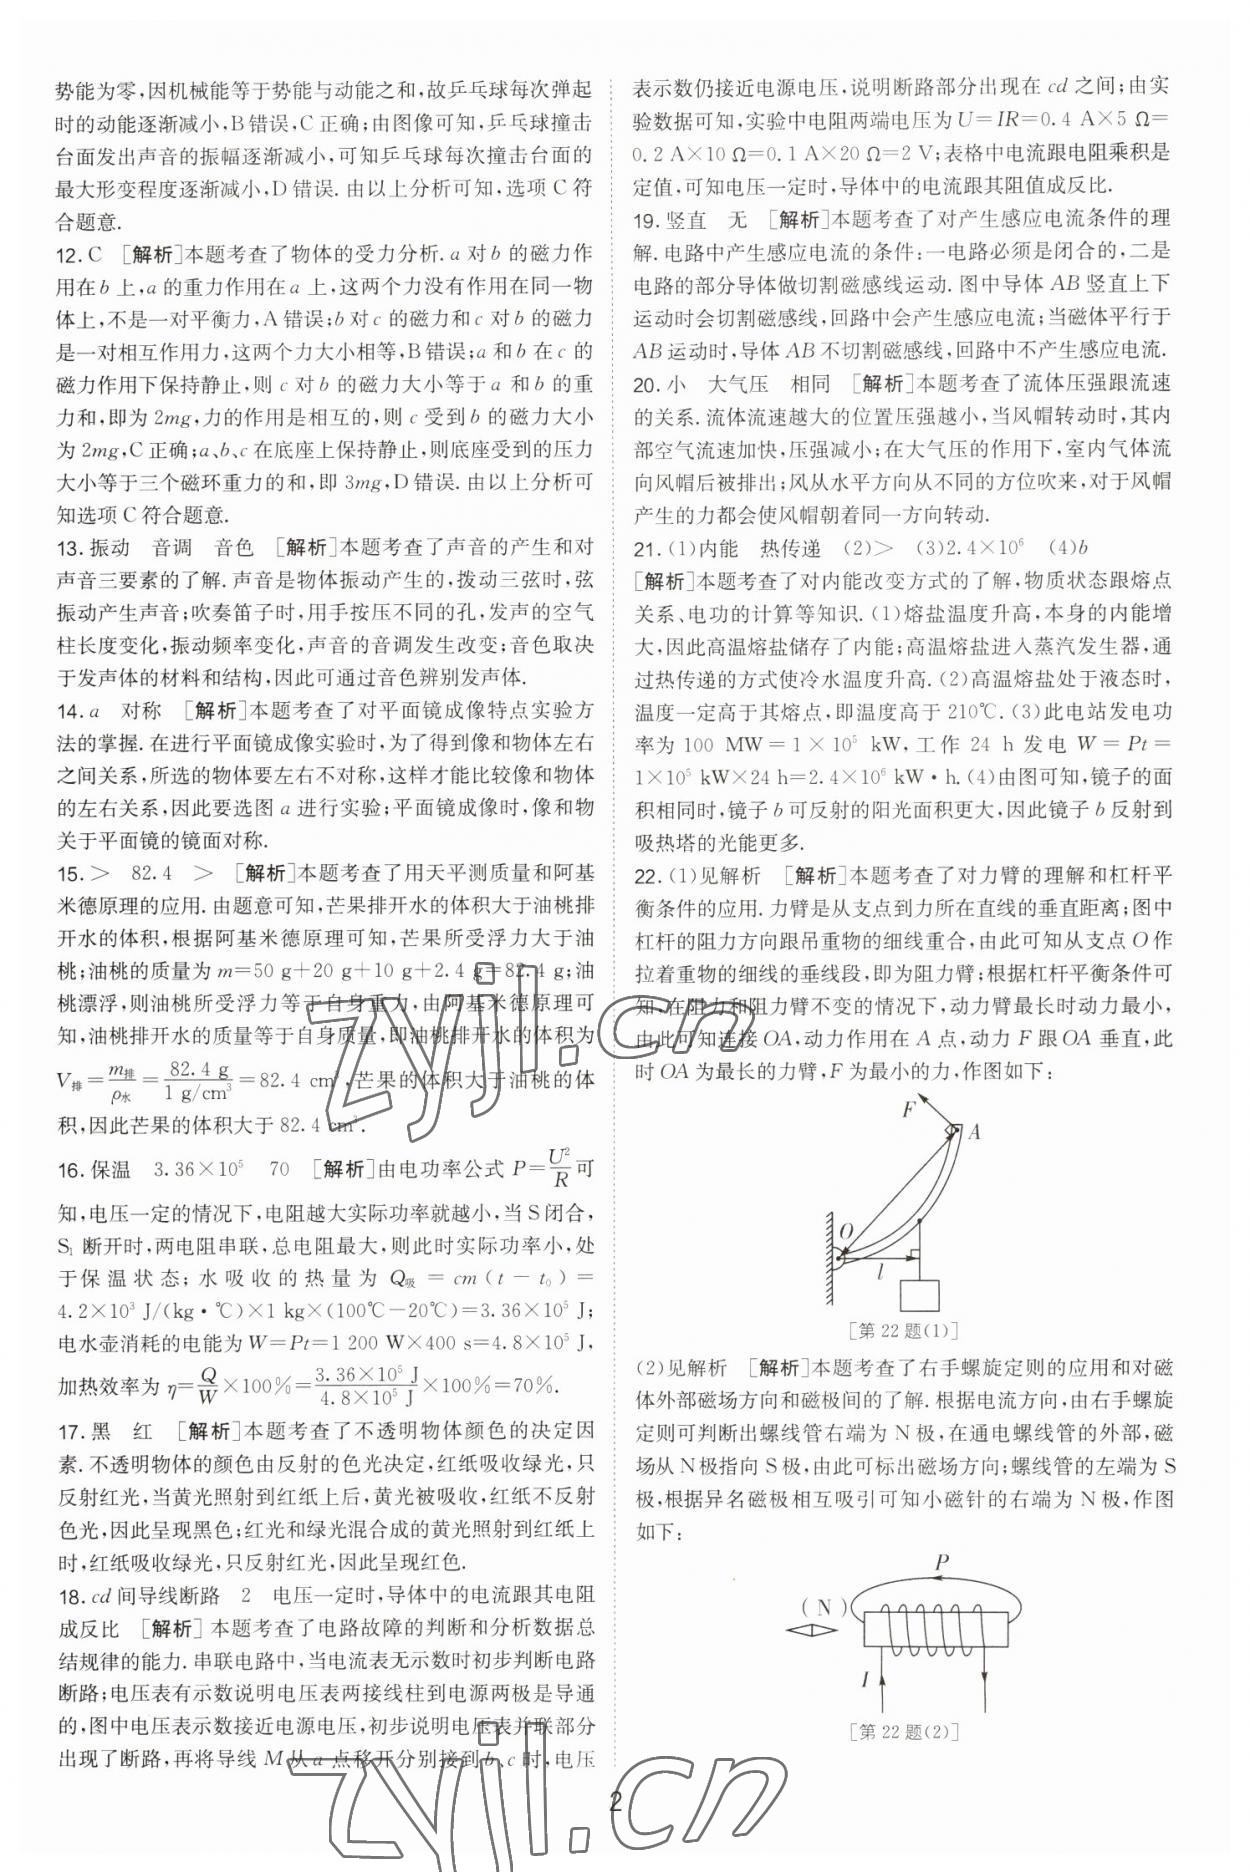 势能为零,因机械能等于势能与动能之和,故乒乓球每次弹起
时的动能逐渐减小,B错误,C正确;由图像可知,乒乓球撞击
台面发出声音的振幅逐渐减小,可知乒乓球每次撞击台面的
最大形变程度逐渐减小,D错误.由以上分析可知,选项C符
合题意.
12.C [解析]本题考查了物体的受力分析.a对b的磁力作
用在b上,a的重力作用在a上,这两个力没有作用在同一物
体上,不是一对平衡力,A错误;b对c的磁力和c对b的磁力
是一对相互作用力,这两个力大小相等,B错误;a和b在c的
磁力作用下保持静止,则c对b的磁力大小等于a和b的重
力和,即为2mg,力的作用是相互的,则c受到b的磁力大小
为2mg,C正确;a、b、c在底座上保持静止,则底座受到的压力
大小等于三个磁环重力的和,即3mg,D错误.由以上分析可
知选项C符合题意.
13.振动 音调 音色 [解析]本题考查了声音的产生和对
声音三要素的了解.声音是物体振动产生的,拨动三弦时,弦
振动产生声音;吹奏笛子时,用手按压不同的孔,发声的空气
柱长度变化,振动频率变化,声音的音调发生改变;音色取决
于发声体的材料和结构,因此可通过音色辨别发声体.
14.a 对称 [解析]本题考查了对平面镜成像特点实验方
法的掌握.在进行平面镜成像实验时,为了得到像和物体左右
之间关系,所选的物体要左右不对称,这样才能比较像和物体
的左右关系,因此要选图a进行实验;平面镜成像时,像和物
关于平面镜的镜面对称.
15.> 82.4 > [解析]本题考查了用天平测质量和阿基
米德原理的应用.由题意可知,芒果排开水的体积大于油桃排
开水的体积,根据阿基米德原理可知,芒果所受浮力大于油
桃;油桃的质量为m=50 g+20 g+10 g+2.4 g=82.4 g;油
桃漂浮,则油桃所受浮力等于自身重力,由阿基米德原理可
知,油桃排开水的质量等于自身质量,即油桃排开水的体积为
V排=m排/ρ水=82.4 g/1 g/cm³=82.4 cm³,芒果的体积大于油桃的体
积,因此芒果的体积大于82.4 cm³.
16.保温 3.36×10⁵ 70 [解析]由电功率公式P=U²/R可
知,电压一定的情况下,电阻越大实际功率就越小,当S闭合,
S₁断开时,两电阻串联,总电阻最大,则此时实际功率小,处
于保温状态;水吸收的热量为Q吸=cm(t-t₀)=
4.2×10³ J/(kg·℃)×1 kg×(100℃-20℃)=3.36×10⁵ J;
电水壶消耗的电能为W=Pt=1 200 W×400 s=4.8×10⁵ J,
加热效率为η=Q/W×100%=3.36×10⁵ J/4.8×10⁵ J×100%=70%.
17.黑 红 [解析]本题考查了不透明物体颜色的决定因
素.不透明物体的颜色由反射的色光决定,红纸吸收绿光,只
反射红光,当黄光照射到红纸上后,黄光被吸收,红纸不反射
色光,因此呈现黑色;红光和绿光混合成的黄光照射到红纸上
时,红纸吸收绿光,只反射红光,因此呈现红色.
18.cd间导线断路 2 电压一定时,导体中的电流跟其电阻
成反比 [解析]本题考查了电路故障的判断和分析数据总
结规律的能力.串联电路中,当电流表无示数时初步判断电路
断路;电压表有示数说明电压表两接线柱到电源两极是导通
的,图中电压表示数接近电源电压,初步说明电压表并联部分
出现了断路,再将导线M从a点移开分别接到b、c时,电压
表示数仍接近电源电压,说明断路部分出现在cd之间;由实
验数据可知,实验中电阻两端电压为U=IR=0.4 A×5 Ω=
0.2 A×10 Ω=0.1 A×20 Ω=2 V;表格中电流跟电阻乘积是
定值,可知电压一定时,导体中的电流跟其阻值成反比.
19.竖直 无 [解析]本题考查了对产生感应电流条件的理
解.电路中产生感应电流的条件:一电路必须是闭合的,二是
电路的部分导体做切割磁感线运动.图中导体AB竖直上下
运动时会切割磁感线,回路中会产生感应电流;当磁体平行于
AB运动时,导体AB不切割磁感线,回路中不产生感应电流.
20.小 大气压 相同 [解析]本题考查了流体压强跟流速
的关系.流体流速越大的位置压强越小,当风帽转动时,其内
部空气流速加快,压强减小;在大气压的作用下,室内气体流
向风帽后被排出;风从水平方向从不同的方位吹来,对于风帽
产生的力都会使风帽朝着同一方向转动.
21.(1)内能 热传递 (2)> (3)2.4×10⁶ (4)b
[解析]本题考查了对内能改变方式的了解,物质状态跟熔点
关系、电功的计算等知识.(1)熔盐温度升高,本身的内能增
大,因此高温熔盐储存了内能;高温熔盐进入蒸汽发生器,通
过热传递的方式使冷水温度升高.(2)高温熔盐处于液态时,
温度一定高于其熔点,即温度高于210℃.(3)此电站发电功
率为100 MW=1×10⁵ kW,工作24 h发电W=Pt=
1×10⁵ kW×24 h=2.4×10⁶ kW·h.(4)由图可知,镜子的面
积相同时,镜子b可反射的阳光面积更大,因此镜子b反射到
吸热塔的光能更多.
22.(1)见解析 [解析]本题考查了对力臂的理解和杠杆平
衡条件的应用.力臂是从支点到力所在直线的垂直距离;图中
杠杆的阻力方向跟吊重物的细线重合,由此可知从支点O作
拉着重物的细线的垂线段,即为阻力臂;根据杠杆平衡条件可
知,在阻力和阻力臂不变的情况下,动力臂最长时动力最小,
由此可知连接OA,动力作用在A点,动力F跟OA垂直,此
时OA为最长的力臂,F为最小的力,作图如下:
F
A
O
l
[第22题(1)]
(2)见解析 [解析]本题考查了右手螺旋定则的应用和对磁
体外部磁场方向和磁极间的了解.根据电流方向,由右手螺旋
定则可判断出螺线管右端为N极,在通电螺线管的外部,磁
场从N极指向S极,由此可标出磁场方向;螺线管的左端为S
极,根据异名磁极相互吸引可知小磁针的右端为N极,作图
如下:
P
(N)
I
[第22题(2)]
2
zyjl.cn
zyjl.cn